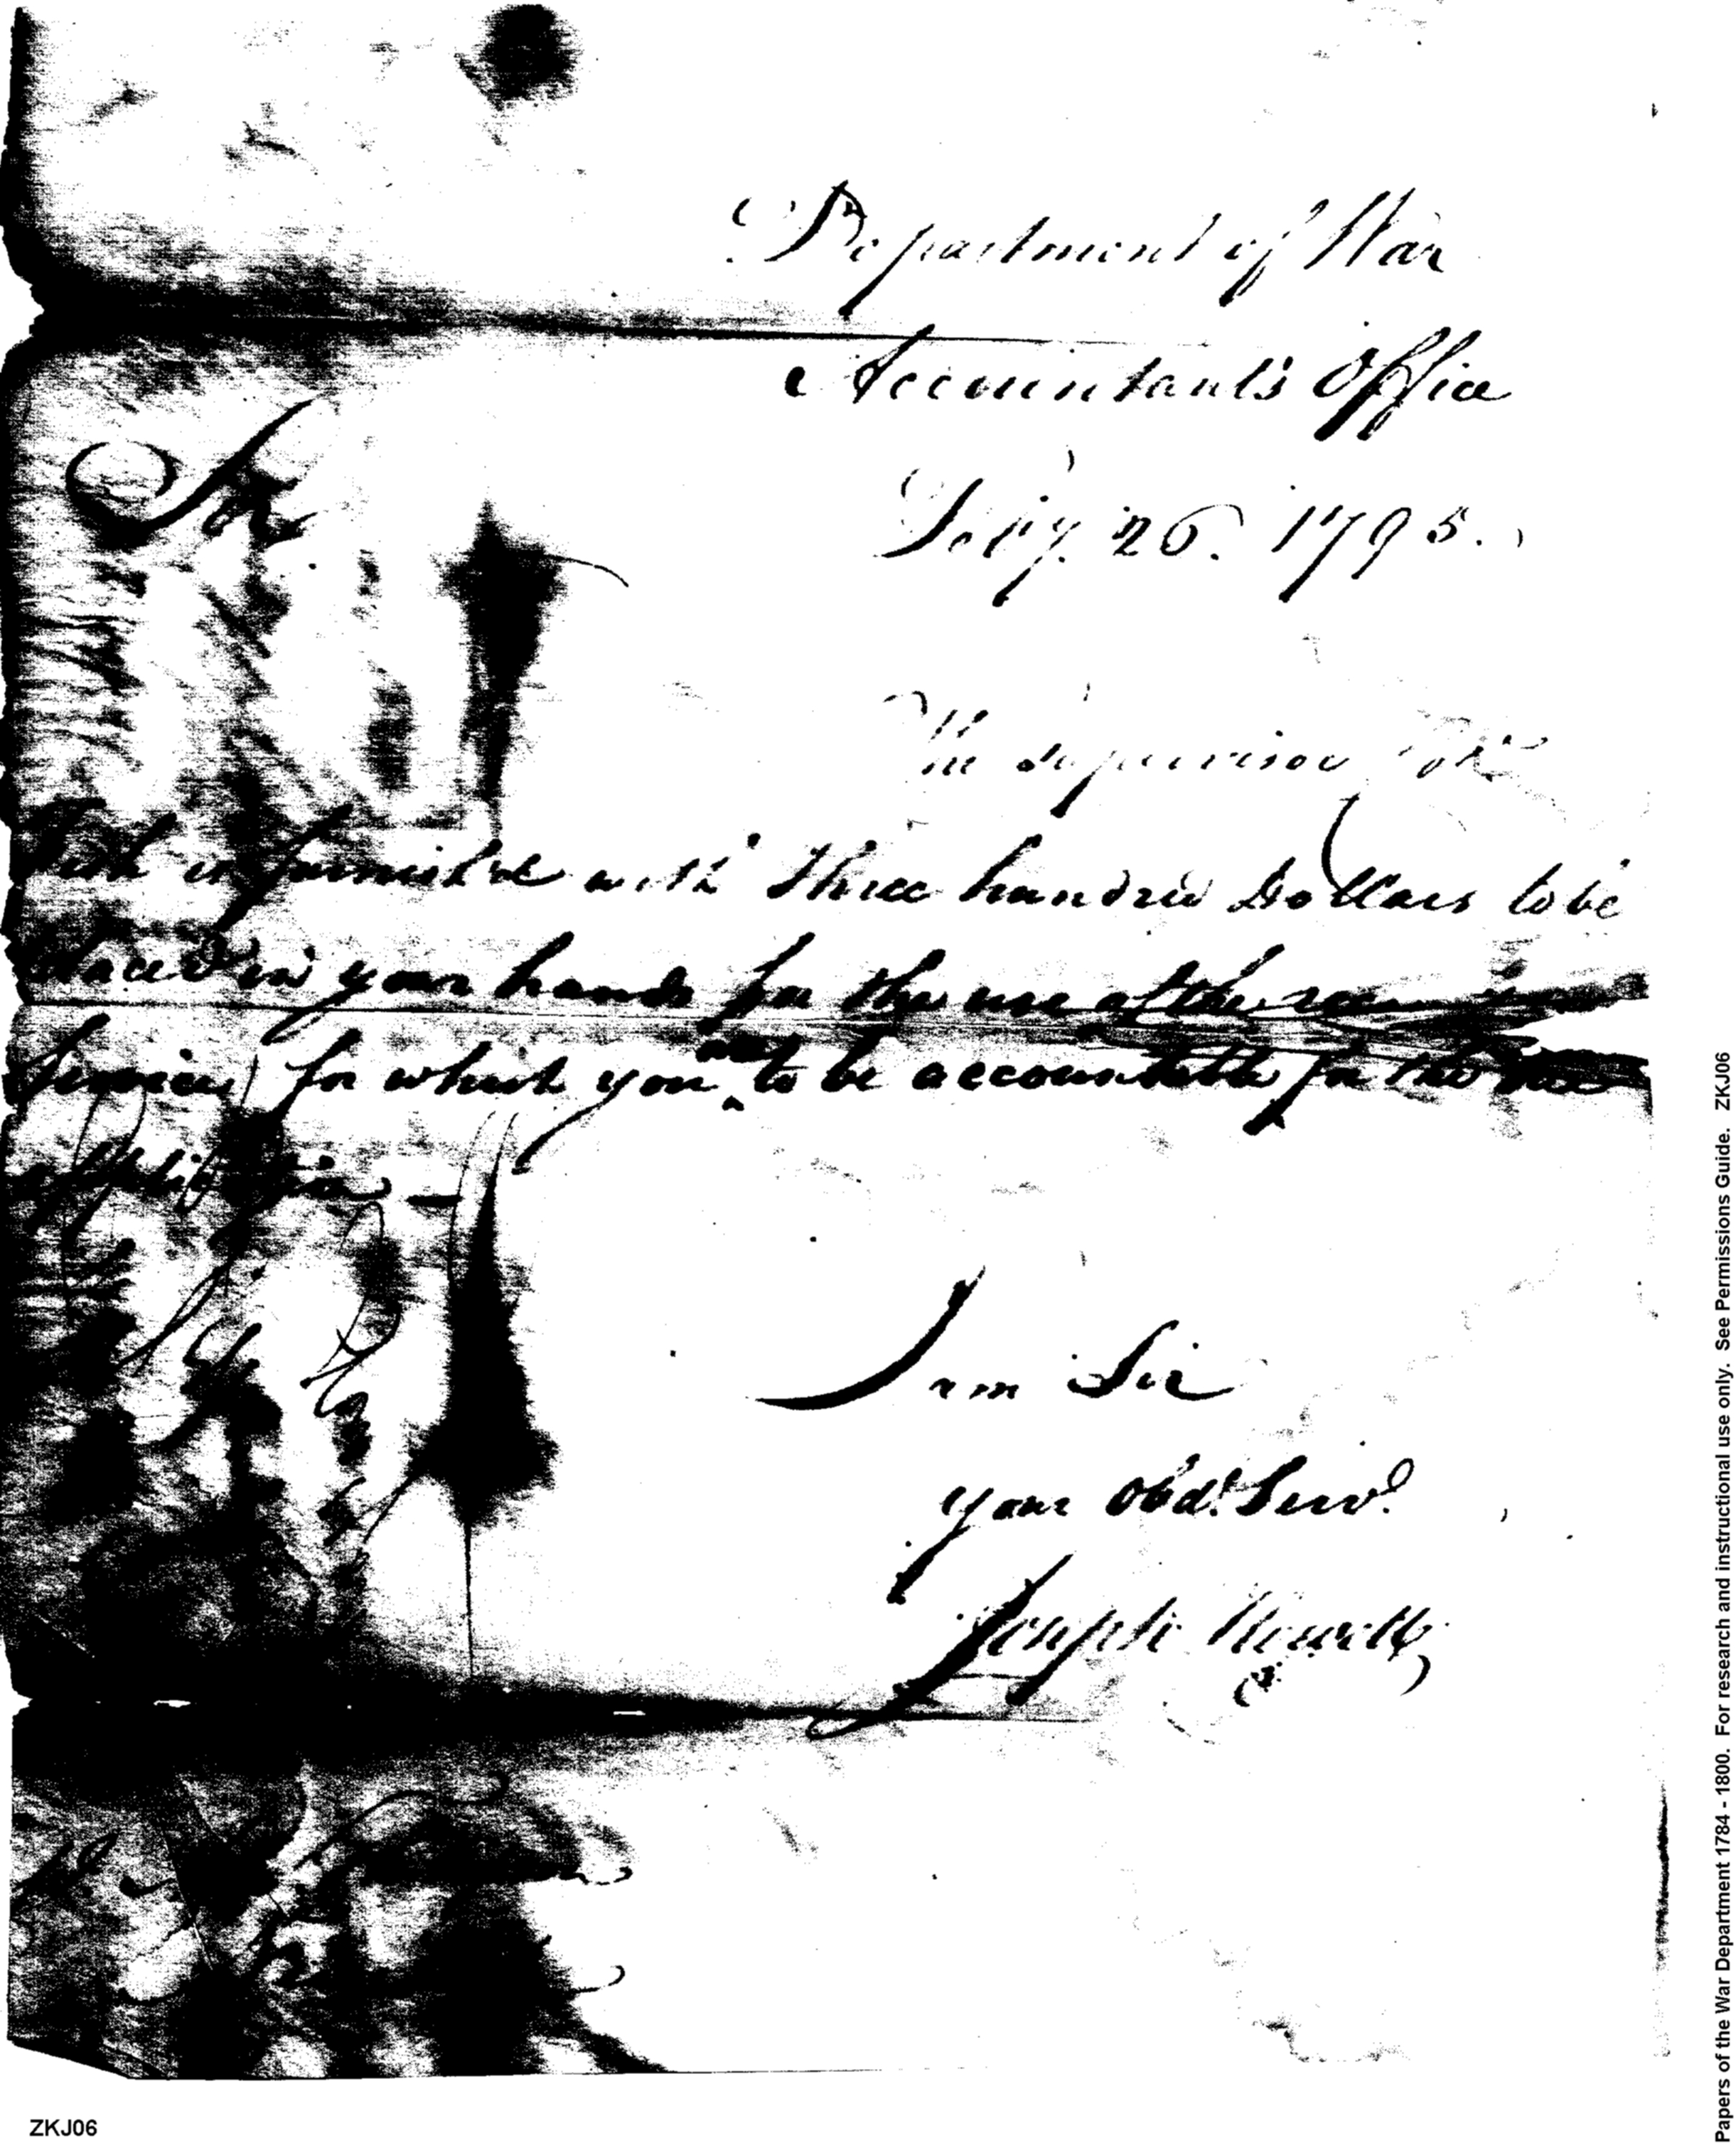 Department of War
Accountant's Office
Sir
Feby. 26. 1795.
The Supervisor
furnished with three hundred Dollars to be
placed in your hands for the use of the
Service, for which you to be accountable for the
application —
I am Sir
your Obdt. Servt.
Joseph Howell
ZKJ06
Papers of the War Department 1784 - 1800. For research and instructional use only. See Permissions Guide. ZKJ06